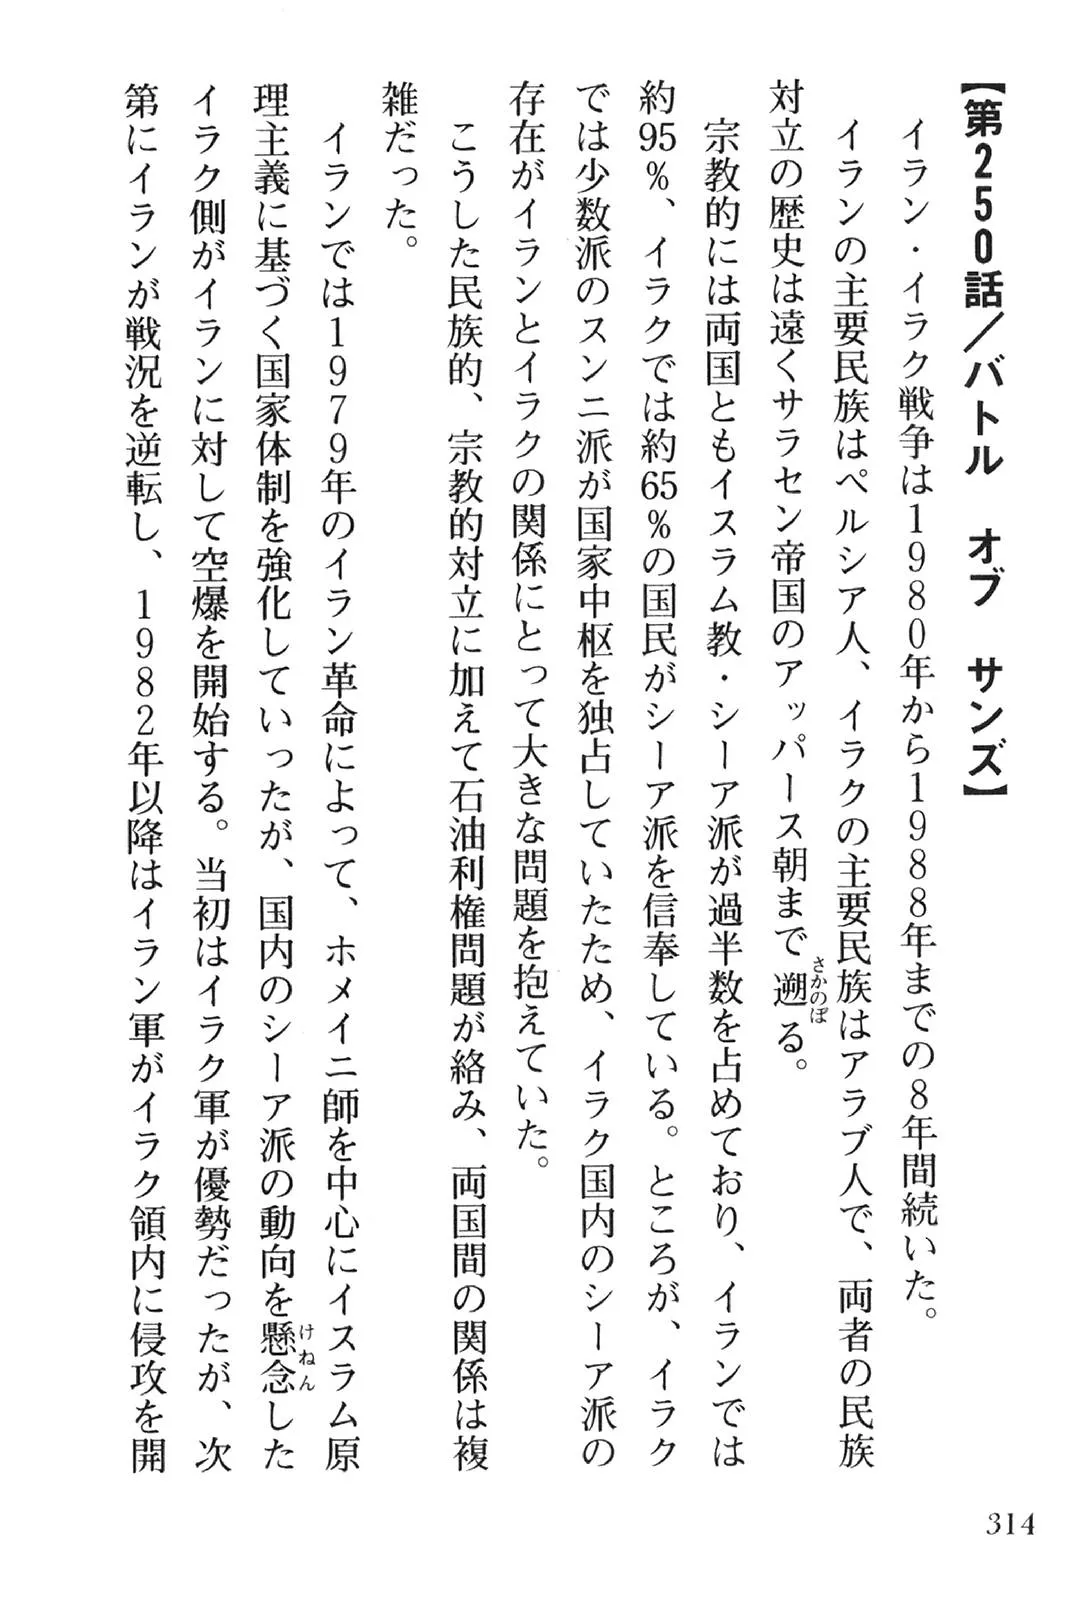 【第250話／バトル　オブ　サンズ】
イラン・イラク戦争は1980年から1988年までの8年間続いた。
イランの主要民族はペルシア人、イラクの主要民族はアラブ人で、両者の民族
対立の歴史は遠くサラセン帝国のアッパース朝まで遡る。
さかのぼ
宗教的には両国ともイスラム教・シーア派が過半数を占めており、イランでは
約95％、イラクでは約65％の国民がシーア派を信奉している。ところが、イラク
では少数派のスンニ派が国家中枢を独占していたため、イラク国内のシーア派の
存在がイランとイラクの関係にとって大きな問題を抱えていた。
こうした民族的、宗教的対立に加えて石油利権問題が絡み、両国間の関係は複
雑だった。
イランでは1979年のイラン革命によって、ホメイニ師を中心にイスラム原
理主義に基づく国家体制を強化していったが、国内のシーア派の動向を懸念した
けねん
イラク側がイランに対して空爆を開始する。当初はイラク軍が優勢だったが、次
第にイランが戦況を逆転し、1982年以降はイラン軍がイラク領内に侵攻を開
314